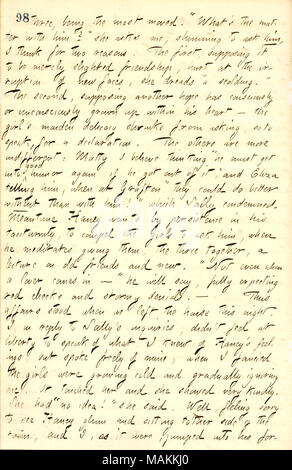 98
three, being the most moved. "What's the mat-
ter with him?" she asks me, shunning to ask him,
I think for two reasons. The first, supposing it
to be merely slighted friendship, hurt at the ir-
ruption of new faces, she dreads "a scolding."
The second, supposing another hope has consciously
or unconsciously grown up within his heart — the
girl's maiden delicacy shrinks from asking, so to
speak, for a declaration. The others are more
indifferent: Matty I believe thinking "he must get
into good humor again if he got out of it! and Eliza
telling him, when at Grafton they could do better
without than with him!" which Sally condemned.
Meantime Haney wants by persistence in his
taciturnity, to compel the girls to ask him, when
he meditates giving them, the three together, a
lecture on old friends and new. "Not even when
a lover comes in —" he will say, fully expecting
red cheeks and stormy denials. — Thus
affairs stood when we left the house this night.
I, in reply to Sally's inquiries, didn't feel at
liberty to speak of what I knew of Haney's feel-
ings but spoke freely of mine, when I fancied
the girls were growing cold and gradually ignoring
me. It touched her and she showed very kindly.
She had "no idea!" she said. Well feeling sorry
to see Haney glum and sitting t'other side of the
room, and I, as it were jumped into his for-
alamy
Image ID: MAKKJ0
www.alamy.com